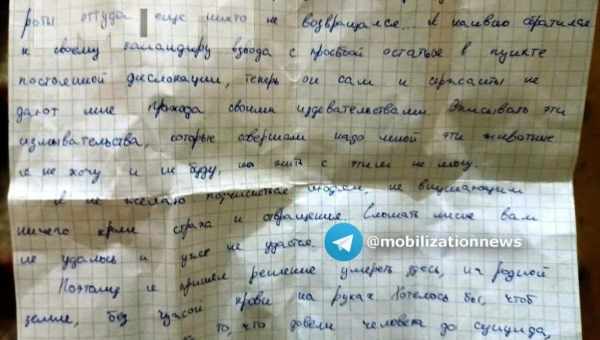 роты оттуда еще никто не возвращался... Я наивно обратился
к своему командиру взвода с просьбой остаться в пункте
постоянной дислокации, теперь он сам и сержанты не
дают мне прохода своими издевательствами. Описывать эти
измывательства, которые совершали надо мной эти животные
я не хочу и не буду, но жить с этим не могу.
Я не желаю подчиняться людям, не внушающим
ничего кроме страха и отвращения. Сломать меня вам
не удалось и уже не удастся.
@mobilizationnews
Поэтому я принял решение умереть здесь, на родной
земле, без чужой крови на руках. Хотелось бы, чтоб
то, что довели человека до суицида,